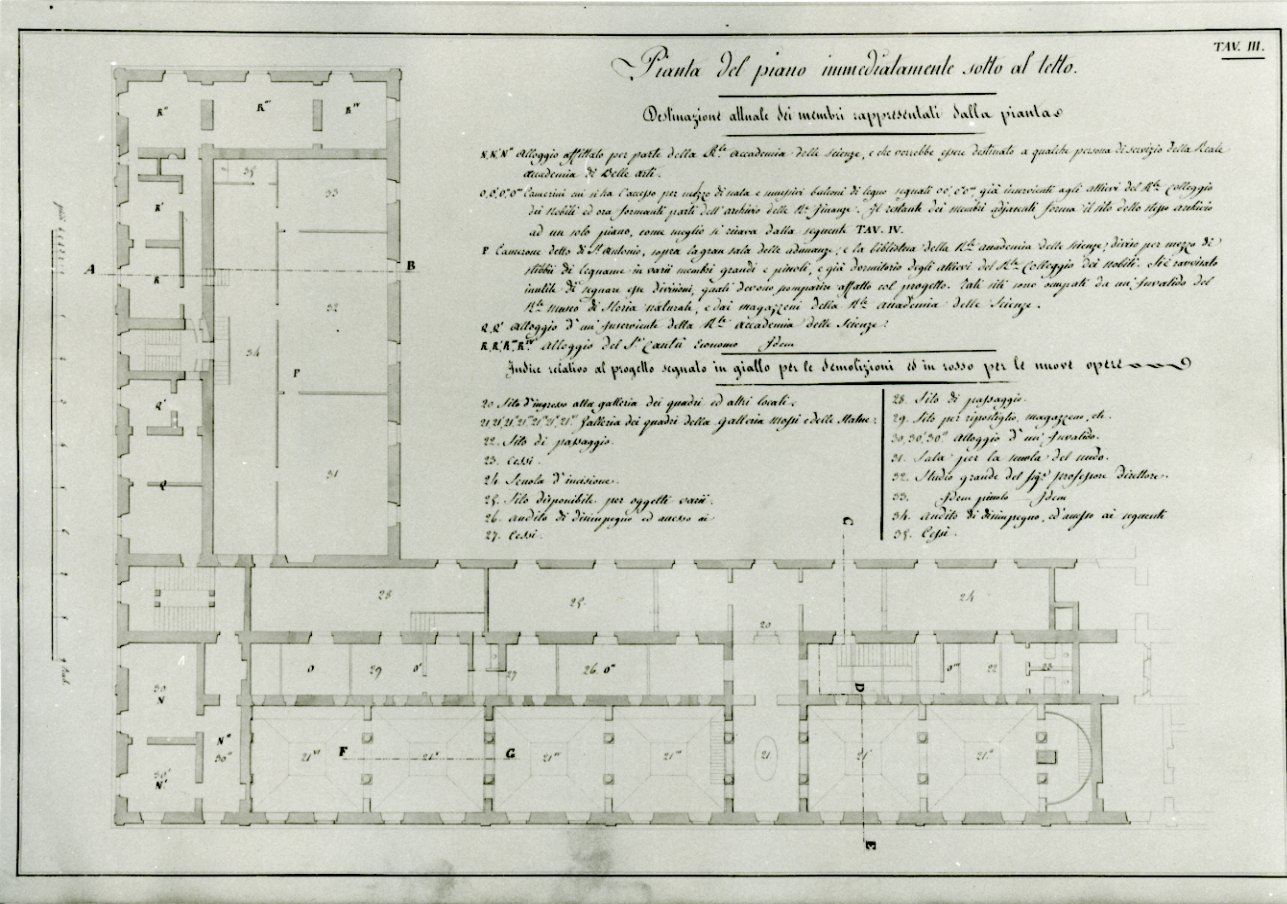 TAV. III.
Pianta del piano immediatamente sotto al tetto.
Destinazione attuale dei membri rappresentati dalla pianta
N,N',N'' Alloggio affittato per parte della R.le Accademia delle Scienze, e che verrebbe essere destinato a qualche persona di servizio della Reale
Accademia di Belle Arti.
O,O',O'',O''' Camerini cui si ha l'accesso per mezzo di scala e successivi balconi di legno segnati già inservienti agli allievi del R.le Collegio
dei Nobili ed ora formanti parti dell'archivio delle R.e Finanze. Il restante dei membri adjacenti forma il sito dello stesso archivio
ad un solo piano, come meglio si ricava dalla seguente TAV. IV.
P Camerone detto di S.t Antonio, sopra la gran sala delle adunanze, e la biblioteca della R.le accademia delle Scienze; diviso per mezzo di
stibbii di legname in varii membri grandi e piccoli, e già dormitorio degli allievi del R.le Collegio dei Nobili. Si è ravvisato
inutile di segnare esse divisioni, quali devono scomparire affatto col progetto. Tali siti sono occupati da un'Invalido del
R.le museo di Storia naturale, e dai magazzeni della R.le accademia delle Scienze.
Q,Q' Alloggio d'un'Inserviente della R.le Accademia delle Scienze.
R,R',R'',R''',R.IV Alloggio del S.r Cantù Economo Idem
Indice relativo al progetto segnato in giallo per le demolizioni ed in rosso per le nuove opere
20 Sito d'ingresso alla galleria dei quadri ed altri locali.
21 Galleria dei quadri della Galleria Mossi e delle Statue.
22. Sito di passaggio.
23. Cessi.
24. Scuola d'incisione.
25. Sito disponibile per oggetti varii.
26. Andito di disimpegno ed accesso ai
27. Cessi.
28. Sito di passaggio.
29. Sito per ripostiglio, magazzeno, etc.
30,30',30'' Alloggio d'un'Invalido.
31. Sala per la scuola del nudo.
32. Studio grande del Sig.r professore Direttore.
33. Idem piccolo Idem
34. Andito di disimpegno, ed accesso ai seguenti
35. Cessi.
R''
R'''
R.IV
35
33
R'
A
B
R
32
34
P
Q'
31
Q
C
28
25
20
24
O
29
O'
27
26
O''
O'''
22
23
D
30
N
N''
30''
30'
N'
F
G
21.VI
21.V
21.IV
21'''
21
21'
21''
E